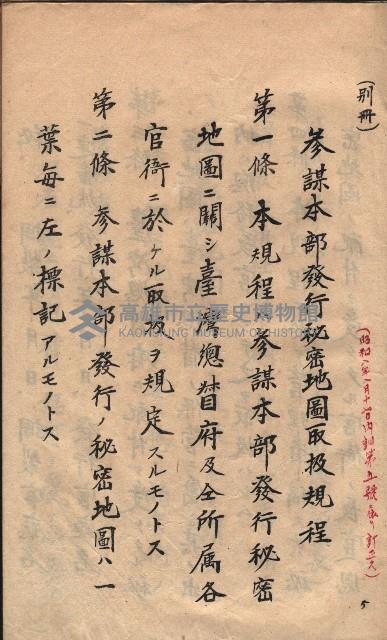 (別冊)
參謀本部發行秘密地圖取扱規程
(昭和八年一月十六日內訓第五號ニ依リ訂正ス)
第一條 本規程ハ參謀本部發行秘密
地圖ニ關シ臺灣總督府及仝所属各
官衙ニ於ケル取扱ヲ規定スルモノトス
第二條 參謀本部發行ノ秘密地圖ハ一
葉每ニ左ノ標記アルモノトス
5
高雄市立歷史博物館
KAOHSIUNG MUSEUM OF HISTORY